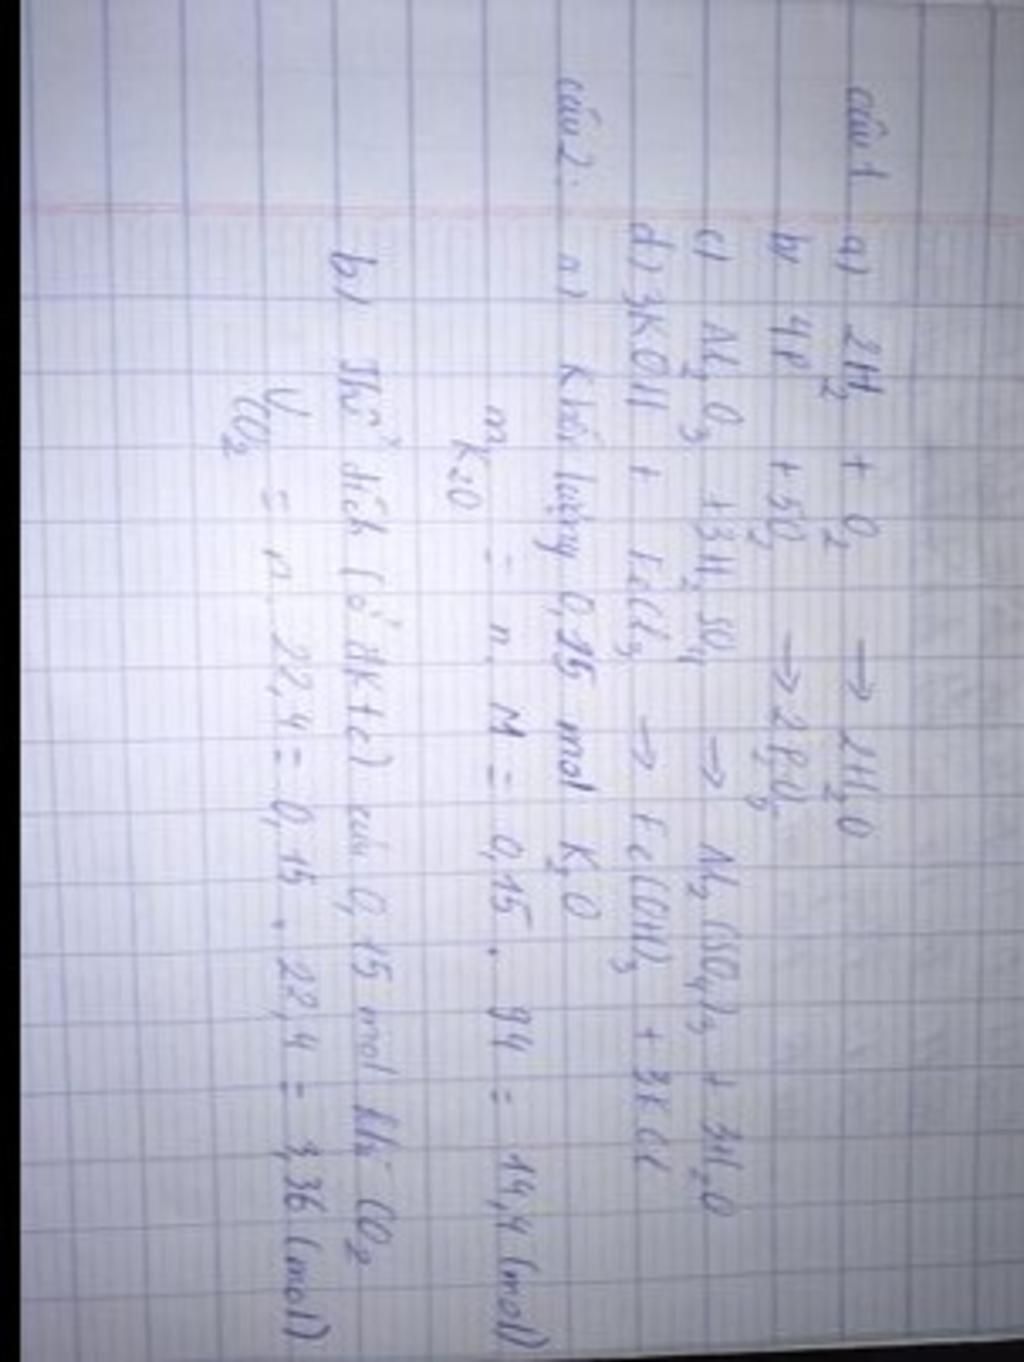 Câu 1 a) 2H₂ + O₂ → 2H₂O
b) 4P + 5O₂ → 2P₂O₅
c) Al₂O₃ + 3H₂SO₄ → Al₂(SO₄)₃ + 3H₂O
d) 3KOH + FeCl₃ → Fe(OH)₃ + 3KCl
Câu 2: a) Khối lượng 0,15 mol K₂O
m K₂O = n. M = 0,15 . 94 = 14,4 (mol)
b) Thể tích (ở đktc) của 0,15 mol khí CO₂
V CO₂ = n. 22,4 = 0,15 . 22,4 = 3,36 (mol)